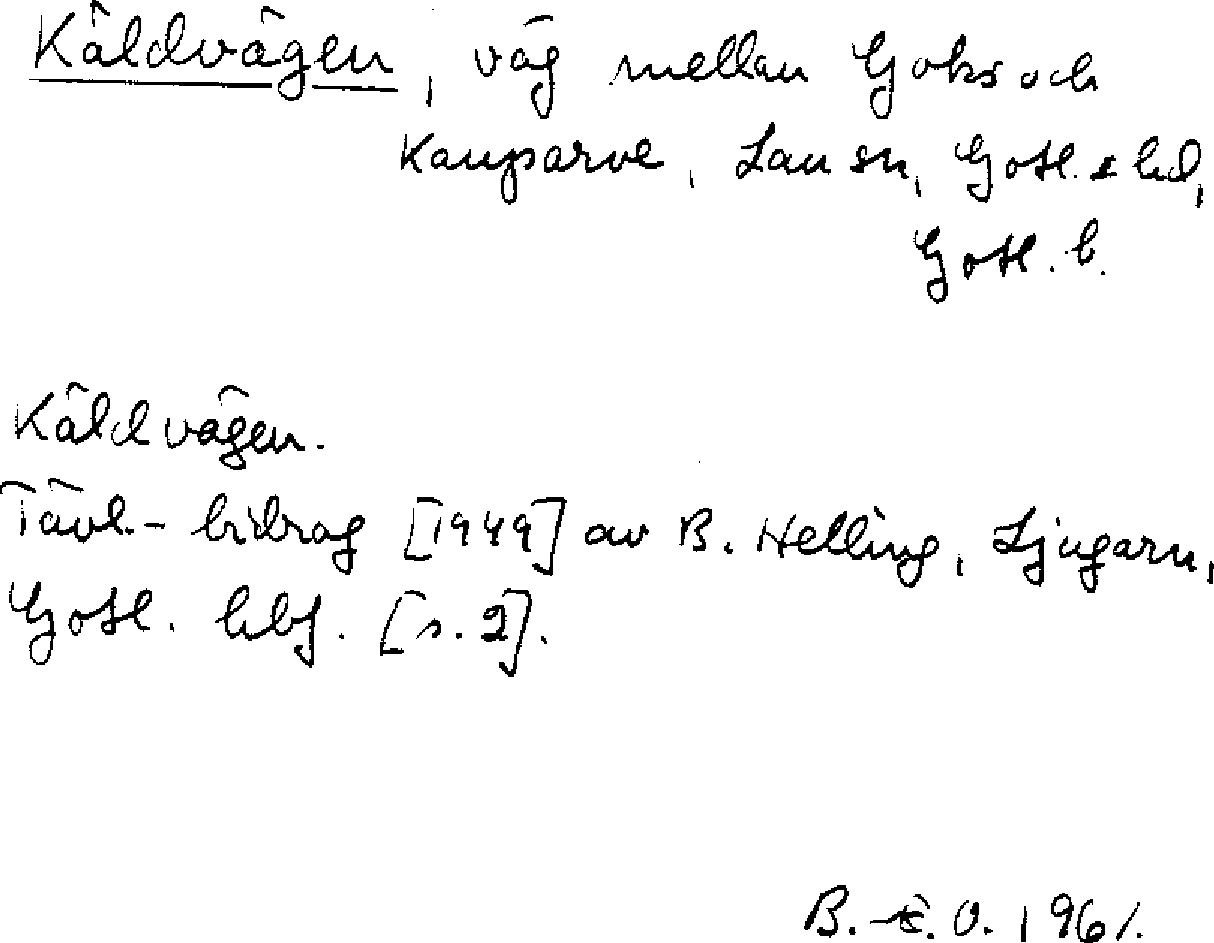 Käldvägen, väg mellan Goks och
Kauparve, Lau sn, Gotl. s hd,
Gotl. l.
Käldvägen.
Tävl.-bidrag [1949] av B. Helling, Ljugarn,
Gotl. hbf. [s. 2].
B. O. 1961.